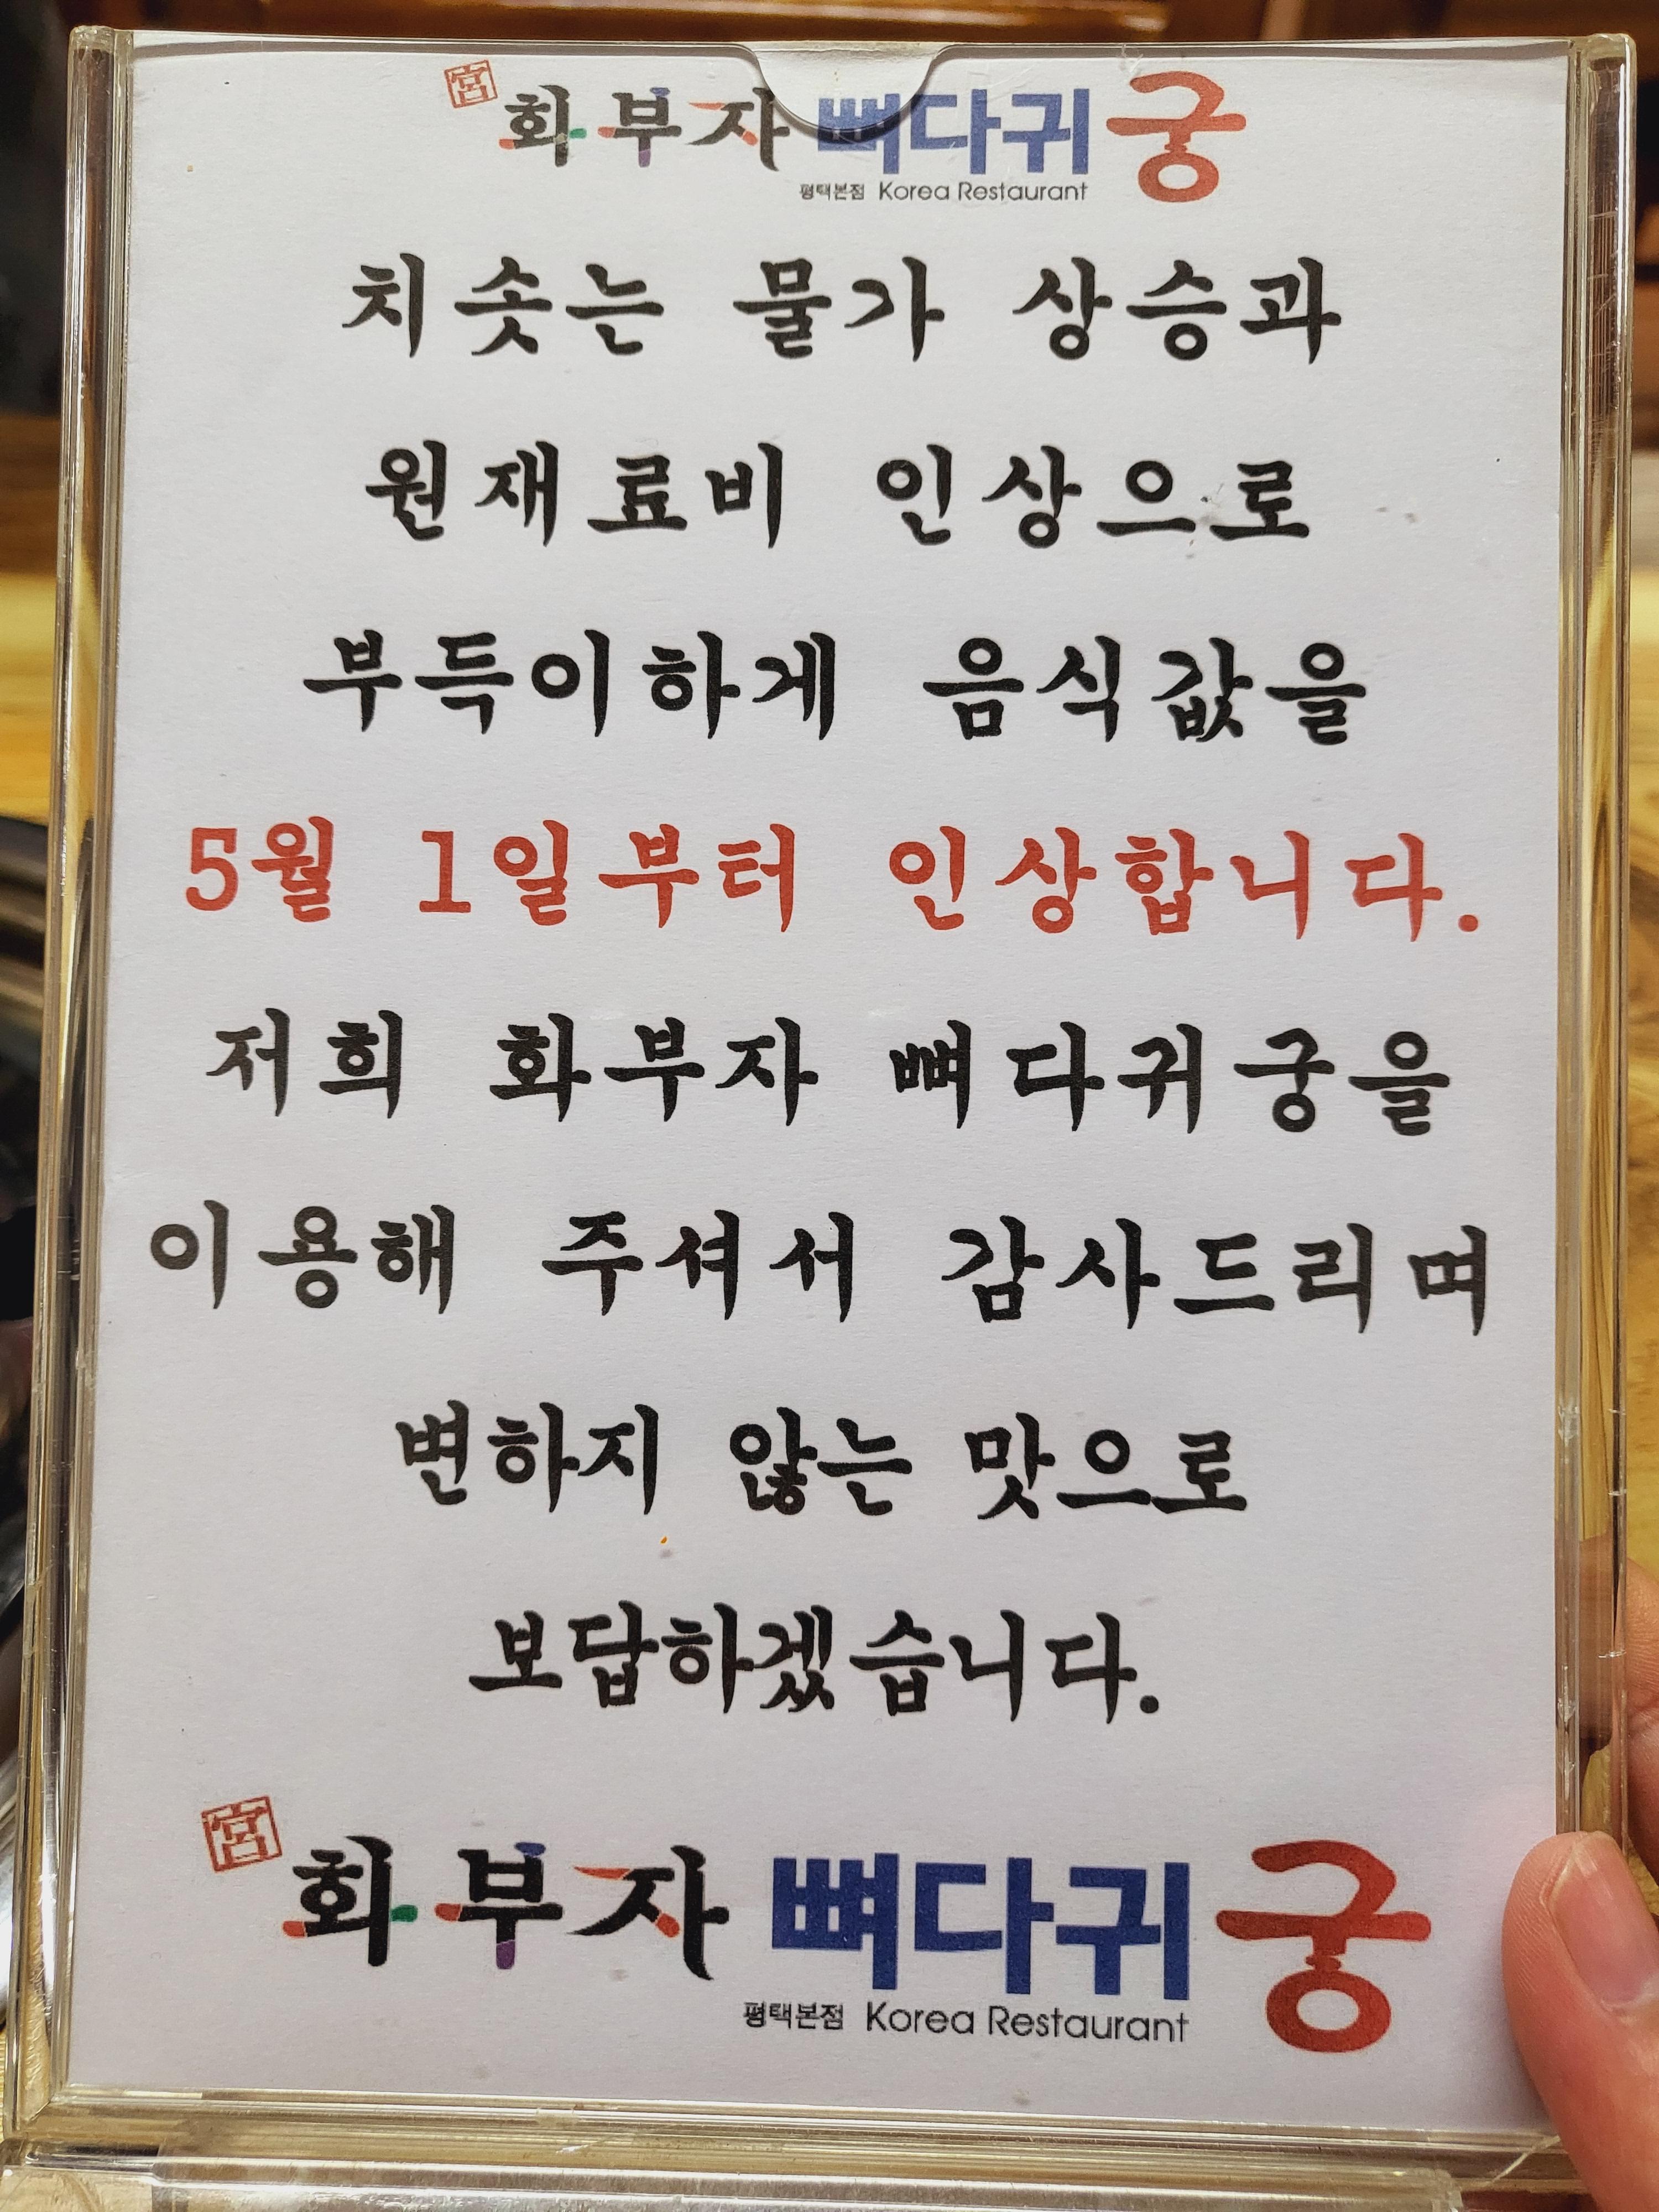 宮 화부자 뼈다귀 궁
평택본점 Korea Restaurant
치솟는 물가 상승과
원재료비 인상으로
부득이하게 음식값을
5월 1일부터 인상합니다.
저희 화부자 뼈다귀궁을
이용해 주셔서 감사드리며
변하지 않는 맛으로
보답하겠습니다.
宮 화부자 뼈다귀 궁
평택본점 Korea Restaurant